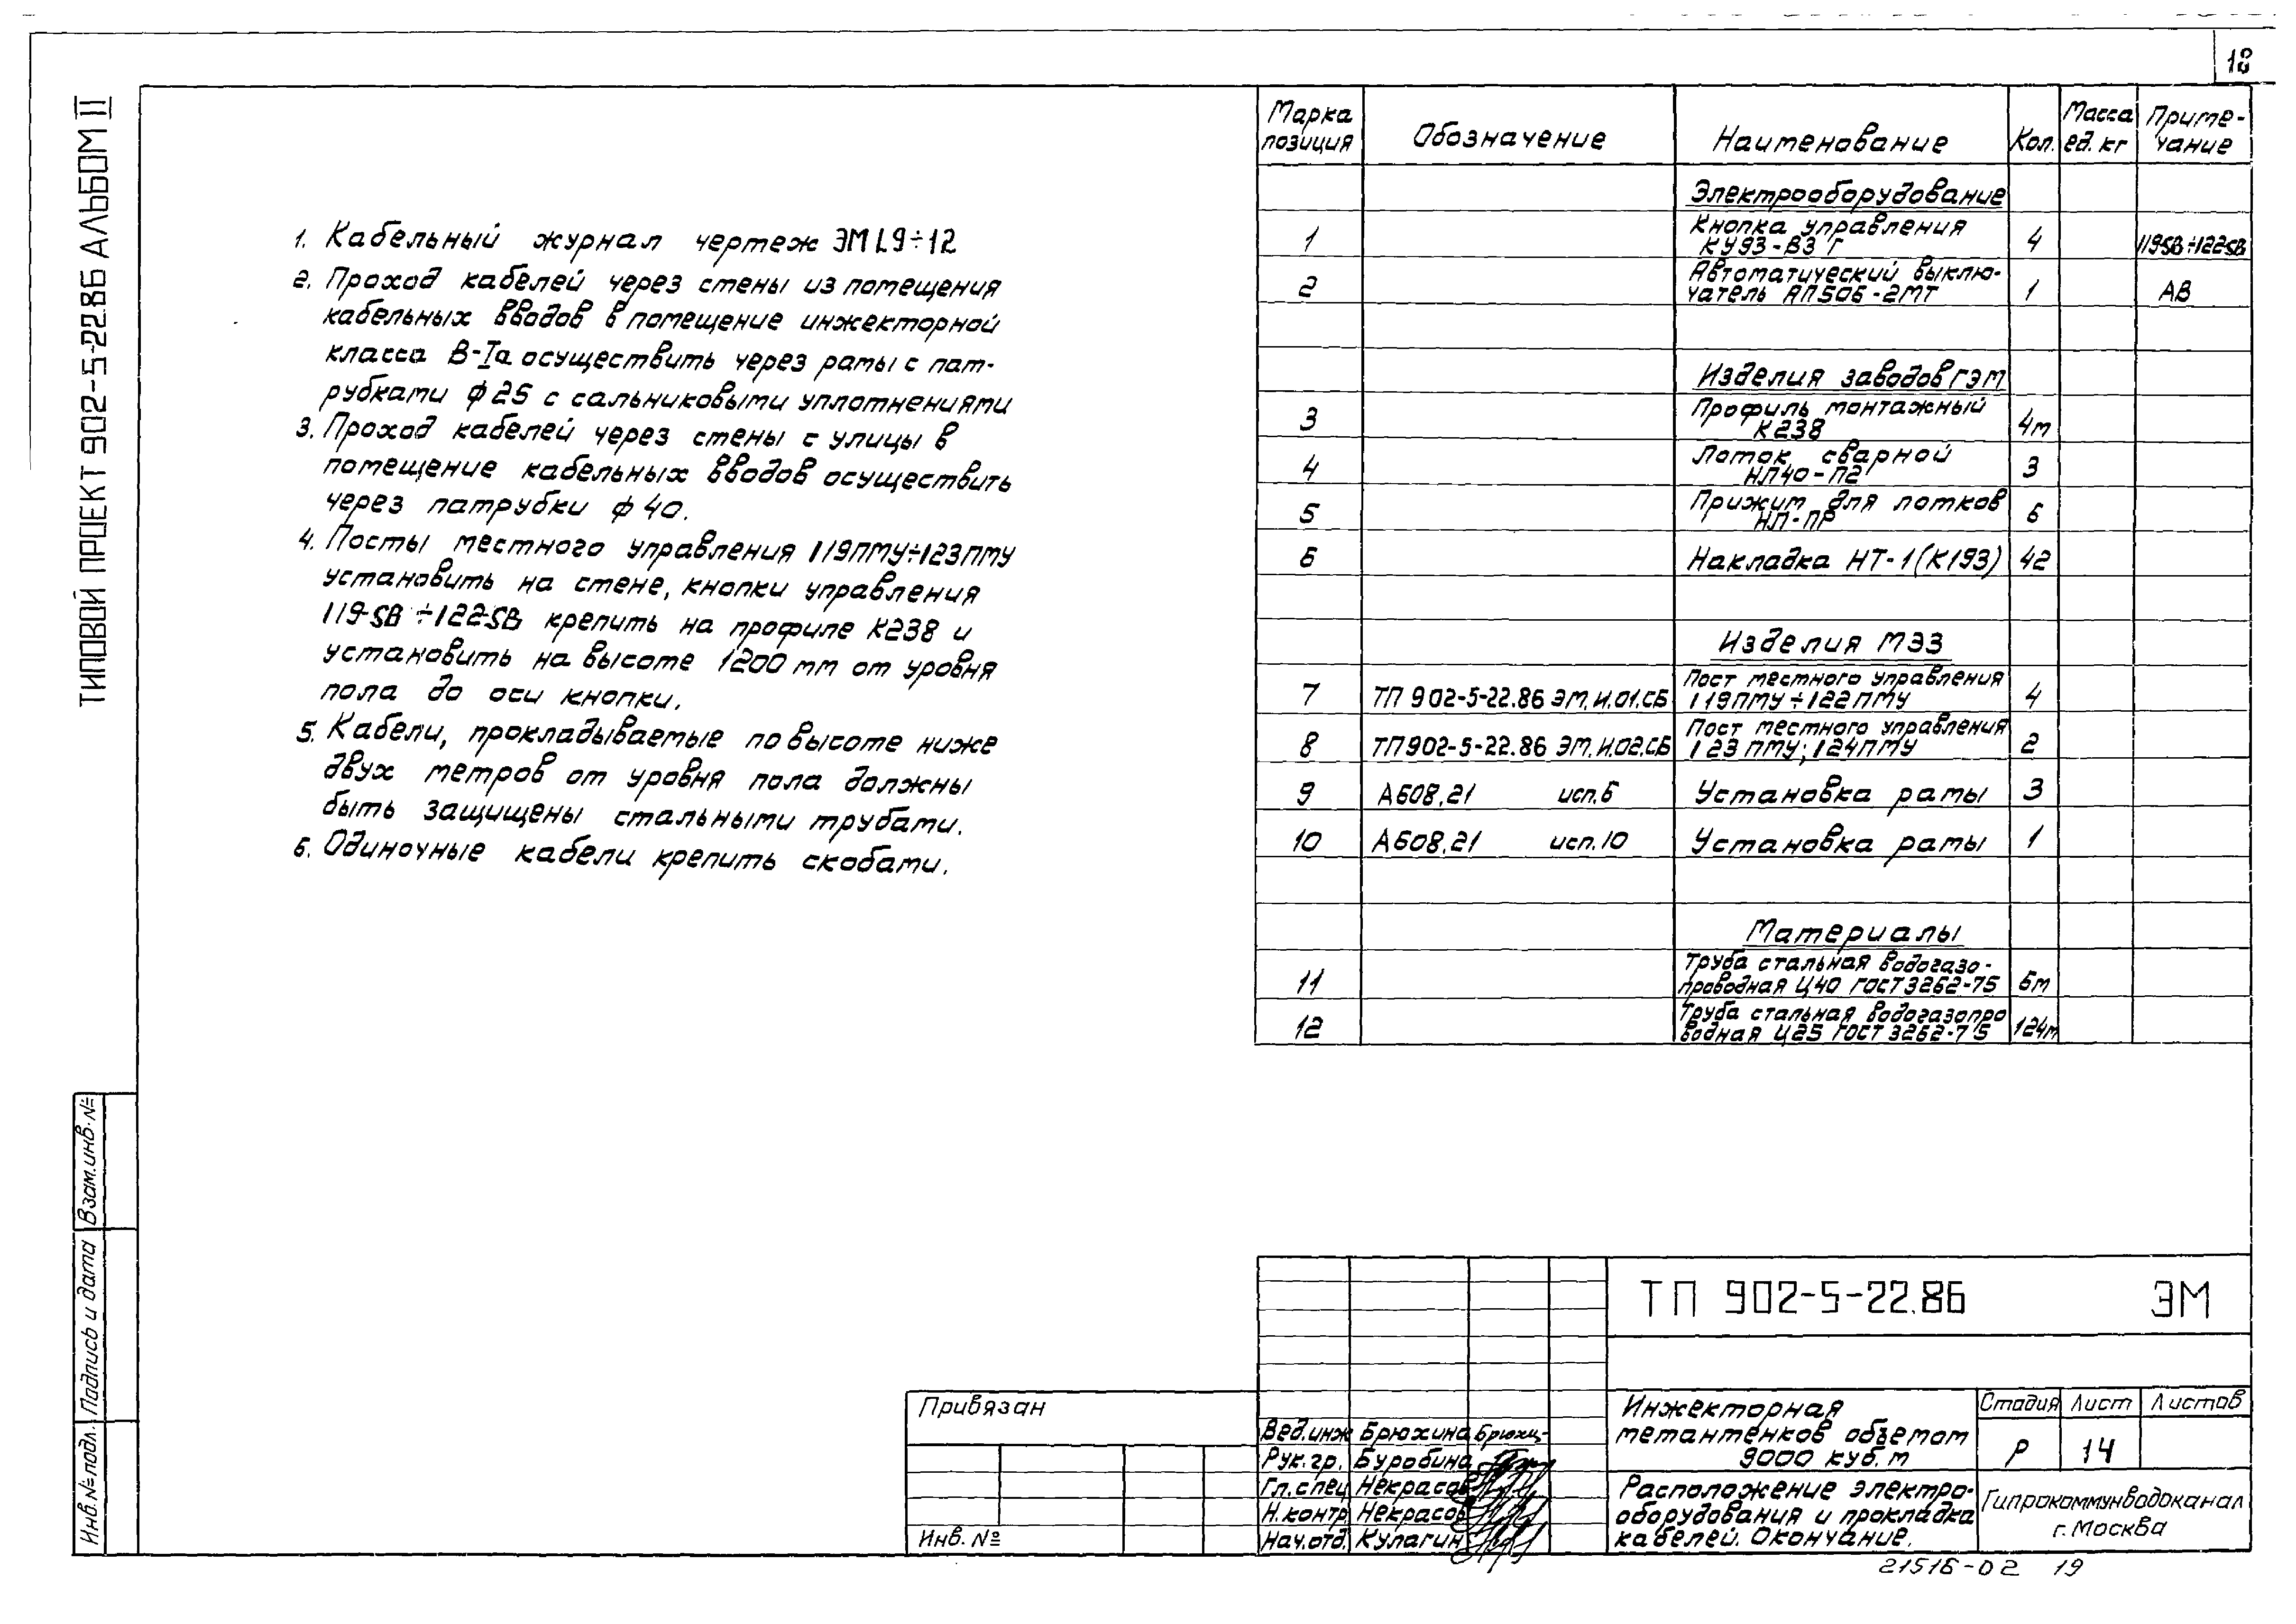 18
ТИПОВОЙ ПРОЕКТ 902-5-22.86 АЛЬБОМ II
1. Кабельный журнал чертеж ЭМ L9÷12
2. Проход кабелей через стены из помещения
кабельных вводов в помещение инжекторной
класса В-Iа осуществить через рамы с пат-
рубками ф 25 с сальниковыми уплотнениями
3. Проход кабелей через стены с улицы в
помещение кабельных вводов осуществить
через патрубки ф 40.
4. Посты местного управления 119ПМУ÷123ПМУ
установить на стене, кнопки управления
119-SB÷122-SB крепить на профиле К238 и
установить на высоте 1200 мм от уровня
пола до оси кнопки.
5. Кабели, прокладываемые по высоте ниже
двух метров от уровня пола должны
быть защищены стальными трубами.
6. Одиночные кабели крепить скобами.
Марка позиция Обозначение Наименование Кол. Масса ед. кг Приме-чание
Электрооборудование
1 Кнопка управления КУ93-ВЗГ 4 119SB÷122SB
2 Автоматический выклю-чатель АП50Б-2МТ 1 АВ
Изделия заводов ГЭМ
3 Профиль монтажный К238 4м
4 Лоток сварной НЛ40-П2 3
5 Прижим для лотков НЛ-ПР 6
6 Накладка НТ-1 (К193) 42
Изделия МЭЗ
7 ТП 902-5-22.86 ЭМ.И.01.СБ Пост местного управления 119ПМУ÷122ПМУ 4
8 ТП 902-5-22.86 ЭМ.И.02.СБ Пост местного управления 123ПМУ; 124ПМУ 2
9 А608.21 исп.6 Установка рамы 3
10 А608.21 исп.10 Установка рамы 1
Материалы
11 Труба стальная водогазо-проводная Ц40 ГОСТ 3262-75 6м
12 Труба стальная водогазопро водная Ц25 ГОСТ 3262-75 124м
Инв.№подл. Подпись и дата Взам.инв.№
Привязан
Инв. №
ТП 902-5-22.86 ЭМ
Вед.инж Брюхина Брюхи-
Рук.гр. Буробина
Гл.спец Некрасов
Н.контр. Некрасов
Нач.отд. Кулагин
Инжекторная
метантенков объемом
9000 куб.м
Стадия Лист Листов
Р 14
Расположение электро-
оборудования и прокладка
кабелей. Окончание.
Гипрокоммунводоканал
г. Москва
21516-02 19